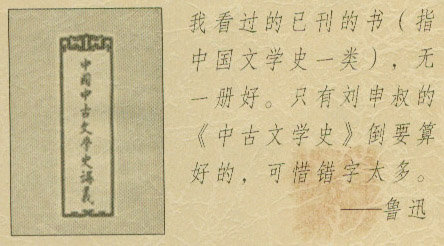 中國中古文學史講義
我看过的已刊的书（指
中国文学史一类），无
一册好。只有刘申叔的
《中古文学史》倒要算
好的，可惜错字太多。
——鲁迅